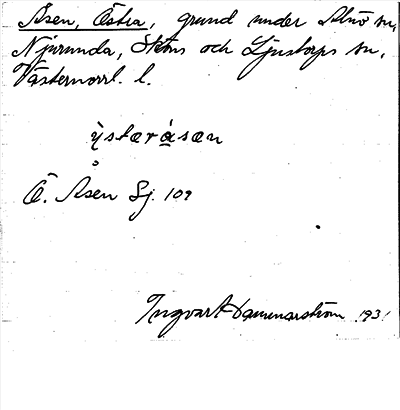 Åsen, Östra, grund under Alnö sn,
Njurunda, Sköns och Ljustorps sn,
Västernorrl. l.
ỳstəràsən
Ö. Åsen Sj. 109
Ingvar Hammarström 1931